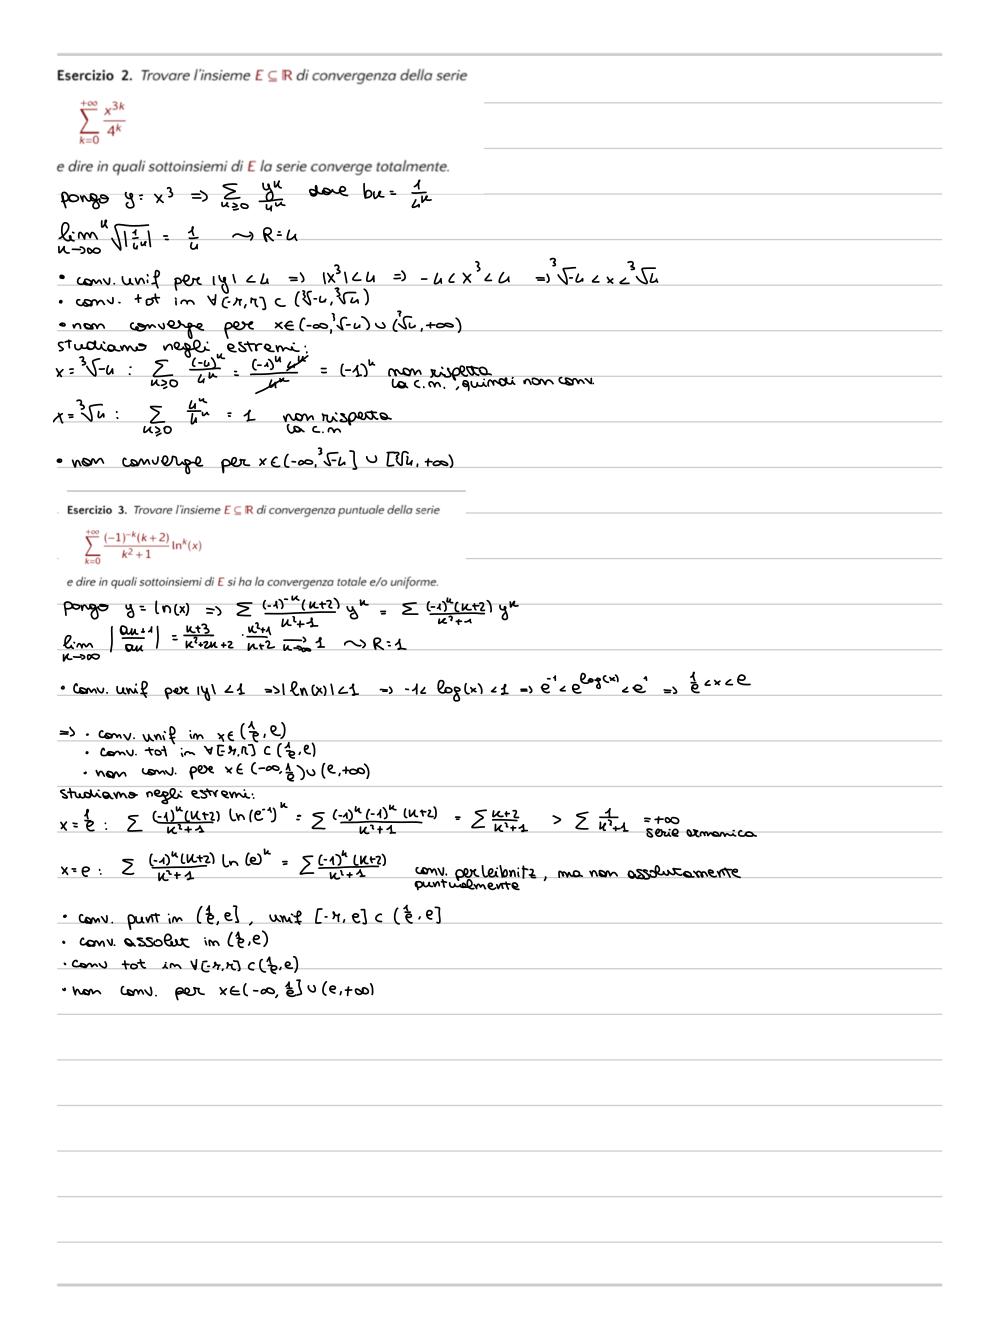 Esercizio 2. Trovare l'insieme E ⊆ ℝ di convergenza della serie
∑_{k=0}^{+∞} x^{3k}/4^k
e dire in quali sottoinsiemi di E la serie converge totalmente.
pongo y = x³ => ∑_{k≥0} y^k/4^k dove bk = 1/4^k
lim_{k→∞} ᵏ√|1/4^k| = 1/4 ⇝ R=4
• conv. unif per |y| < 4 => |x³| < 4 => -4 < x³ < 4 => ³√-4 < x < ³√4
• conv. tot in ∀[-r,r] ⊂ (³√-4, ³√4)
• non converge per x∈(-∞, ³√-4) ∪ (³√4, +∞)
studiamo negli estremi:
x = ³√-4 : ∑_{k≥0} (-4)^k/4^k = (-1)^k 4^k/4^k = (-1)^k non rispetta
la c.n., quindi non conv.
x = ³√4 : ∑_{k≥0} 4^k/4^k = 1 non rispetta
la c.n
• non converge per x∈(-∞, ³√-4] ∪ [³√4, +∞)
Esercizio 3. Trovare l'insieme E ⊆ ℝ di convergenza puntuale della serie
∑_{k=0}^{+∞} (-1)^{-k}(k+2)/(k²+1) ln^k(x)
e dire in quali sottoinsiemi di E si ha la convergenza totale e/o uniforme.
pongo y = ln(x) => ∑ (-1)^{-k}(k+2)/(k²+1) y^k = ∑ (-1)^k(k+2)/(k²+1) y^k
lim_{k→∞} |ak+1/ak| = (k+3)/(k²+2k+2) · (k²+1)/(k+2) →_{k→∞} 1 ⇝ R=1
• conv. unif per |y| < 1 => |ln(x)| < 1 => -1 < log(x) < 1 => e^{-1} < e^{log(x)} < e^1 => 1/e < x < e
=> • conv. unif in x∈(1/e, e)
• conv. tot in ∀[-r,r] ⊂ (1/e, e)
• non conv. per x∈(-∞, 1/e) ∪ (e, +∞)
studiamo negli estremi:
x = 1/e : ∑ (-1)^k(k+2)/(k²+1) ln(e^{-1})^k = ∑ (-1)^k(-1)^k(k+2)/(k²+1) = ∑ (k+2)/(k²+1) > ∑ 1/(k²+1) = +∞
serie armonica
x = e : ∑ (-1)^k(k+2)/(k²+1) ln(e)^k = ∑ (-1)^k(k+2)/(k²+1) conv. per leibnitz, ma non assolutamente
puntualmente
• conv. punt in (1/e, e], unif [-r, e] ⊂ (1/e, e]
• conv. assolut in (1/e, e)
• conv tot in ∀[-r,r] ⊂ (1/e, e)
• non conv. per x∈(-∞, 1/e] ∪ (e, +∞)